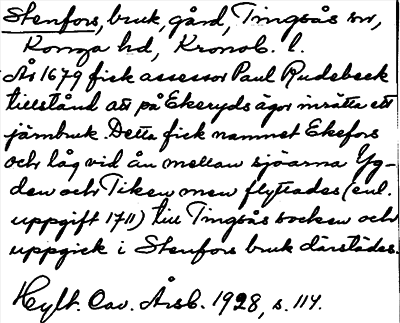 Stenfors, bruk, gård, Tingsås sn,
Konga hd, Kronob. l.
År 1679 fick assessor Paul Rudebeck
tillstånd att på Ekeryds ägor inrätta ett
järnbruk. Detta fick namnet Ekefors
och låg vid ån mellan sjöarna Yg-
den och Tiken men flyttades (enl.
uppgift 1711) till Tingsås socken och
uppgick i Stenfors bruk därstädes.
Hylt. Cav. Årsb. 1928, s. 114.